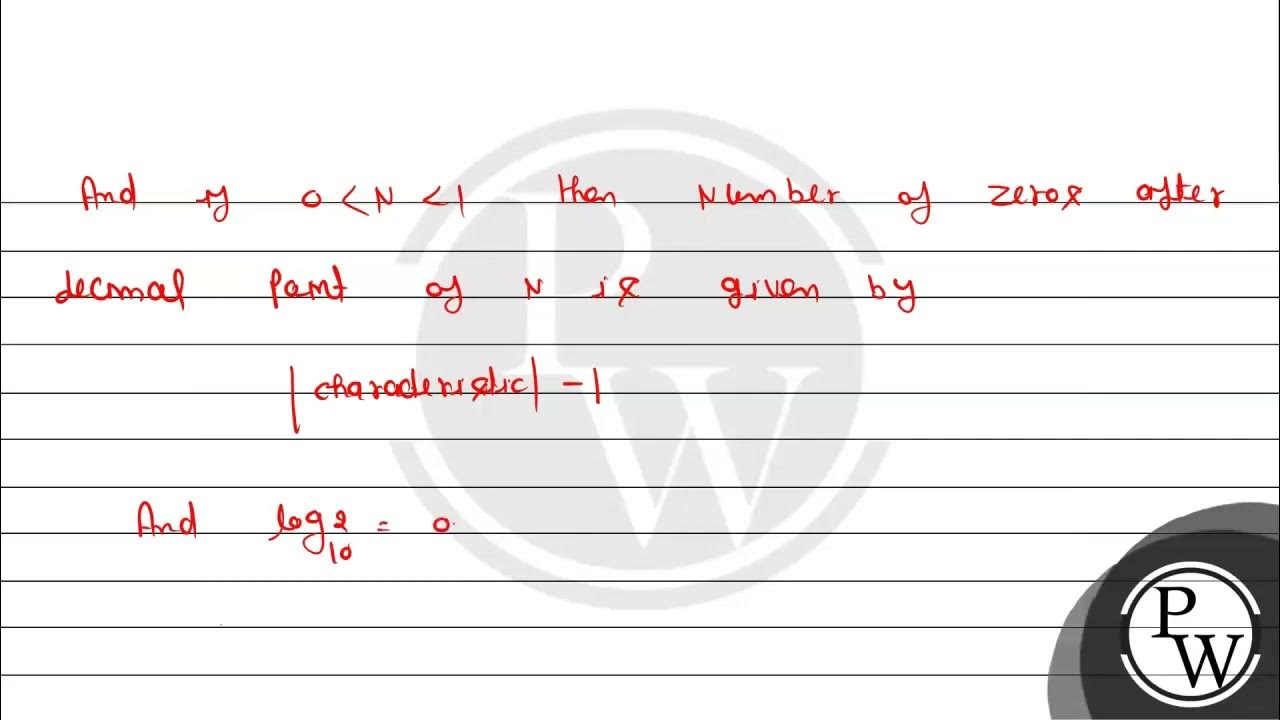 And if 0 < N < 1 then Number of zeros after
decimal part of N is given by
|characteristic| - 1
And log₁₀2 = 0.
PW
PW